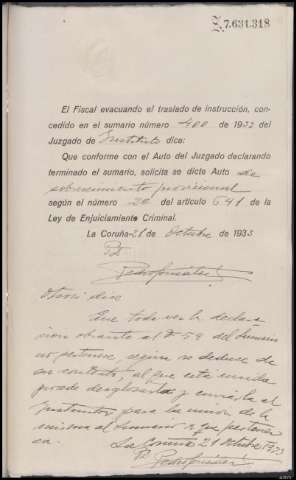 Z.7.631.318
El Fiscal evacuando el traslado de instrucción, con-
cedido en el sumario número 400 de 1932 del
Juzgado de Instituto dice:
Que conforme con el Auto del Juzgado declarando
terminado el sumario, solicita se dicte Auto de
sobreseimiento provisional
según el número 2º del artículo 641 de la
Ley de Enjuiciamiento Criminal.
La Coruña 21 de Octubre de 1933
Otrosí dice
Que toda vez la declara
cion obrante al fº 59 del sumario
no pertenece, según se deduce de
su contexto, al que está unida
procede desglosarla y enviarla al
Instructor para la unión de la
misma al sumario a que pertenez
ca. La Coruña 21 Octubre 1933